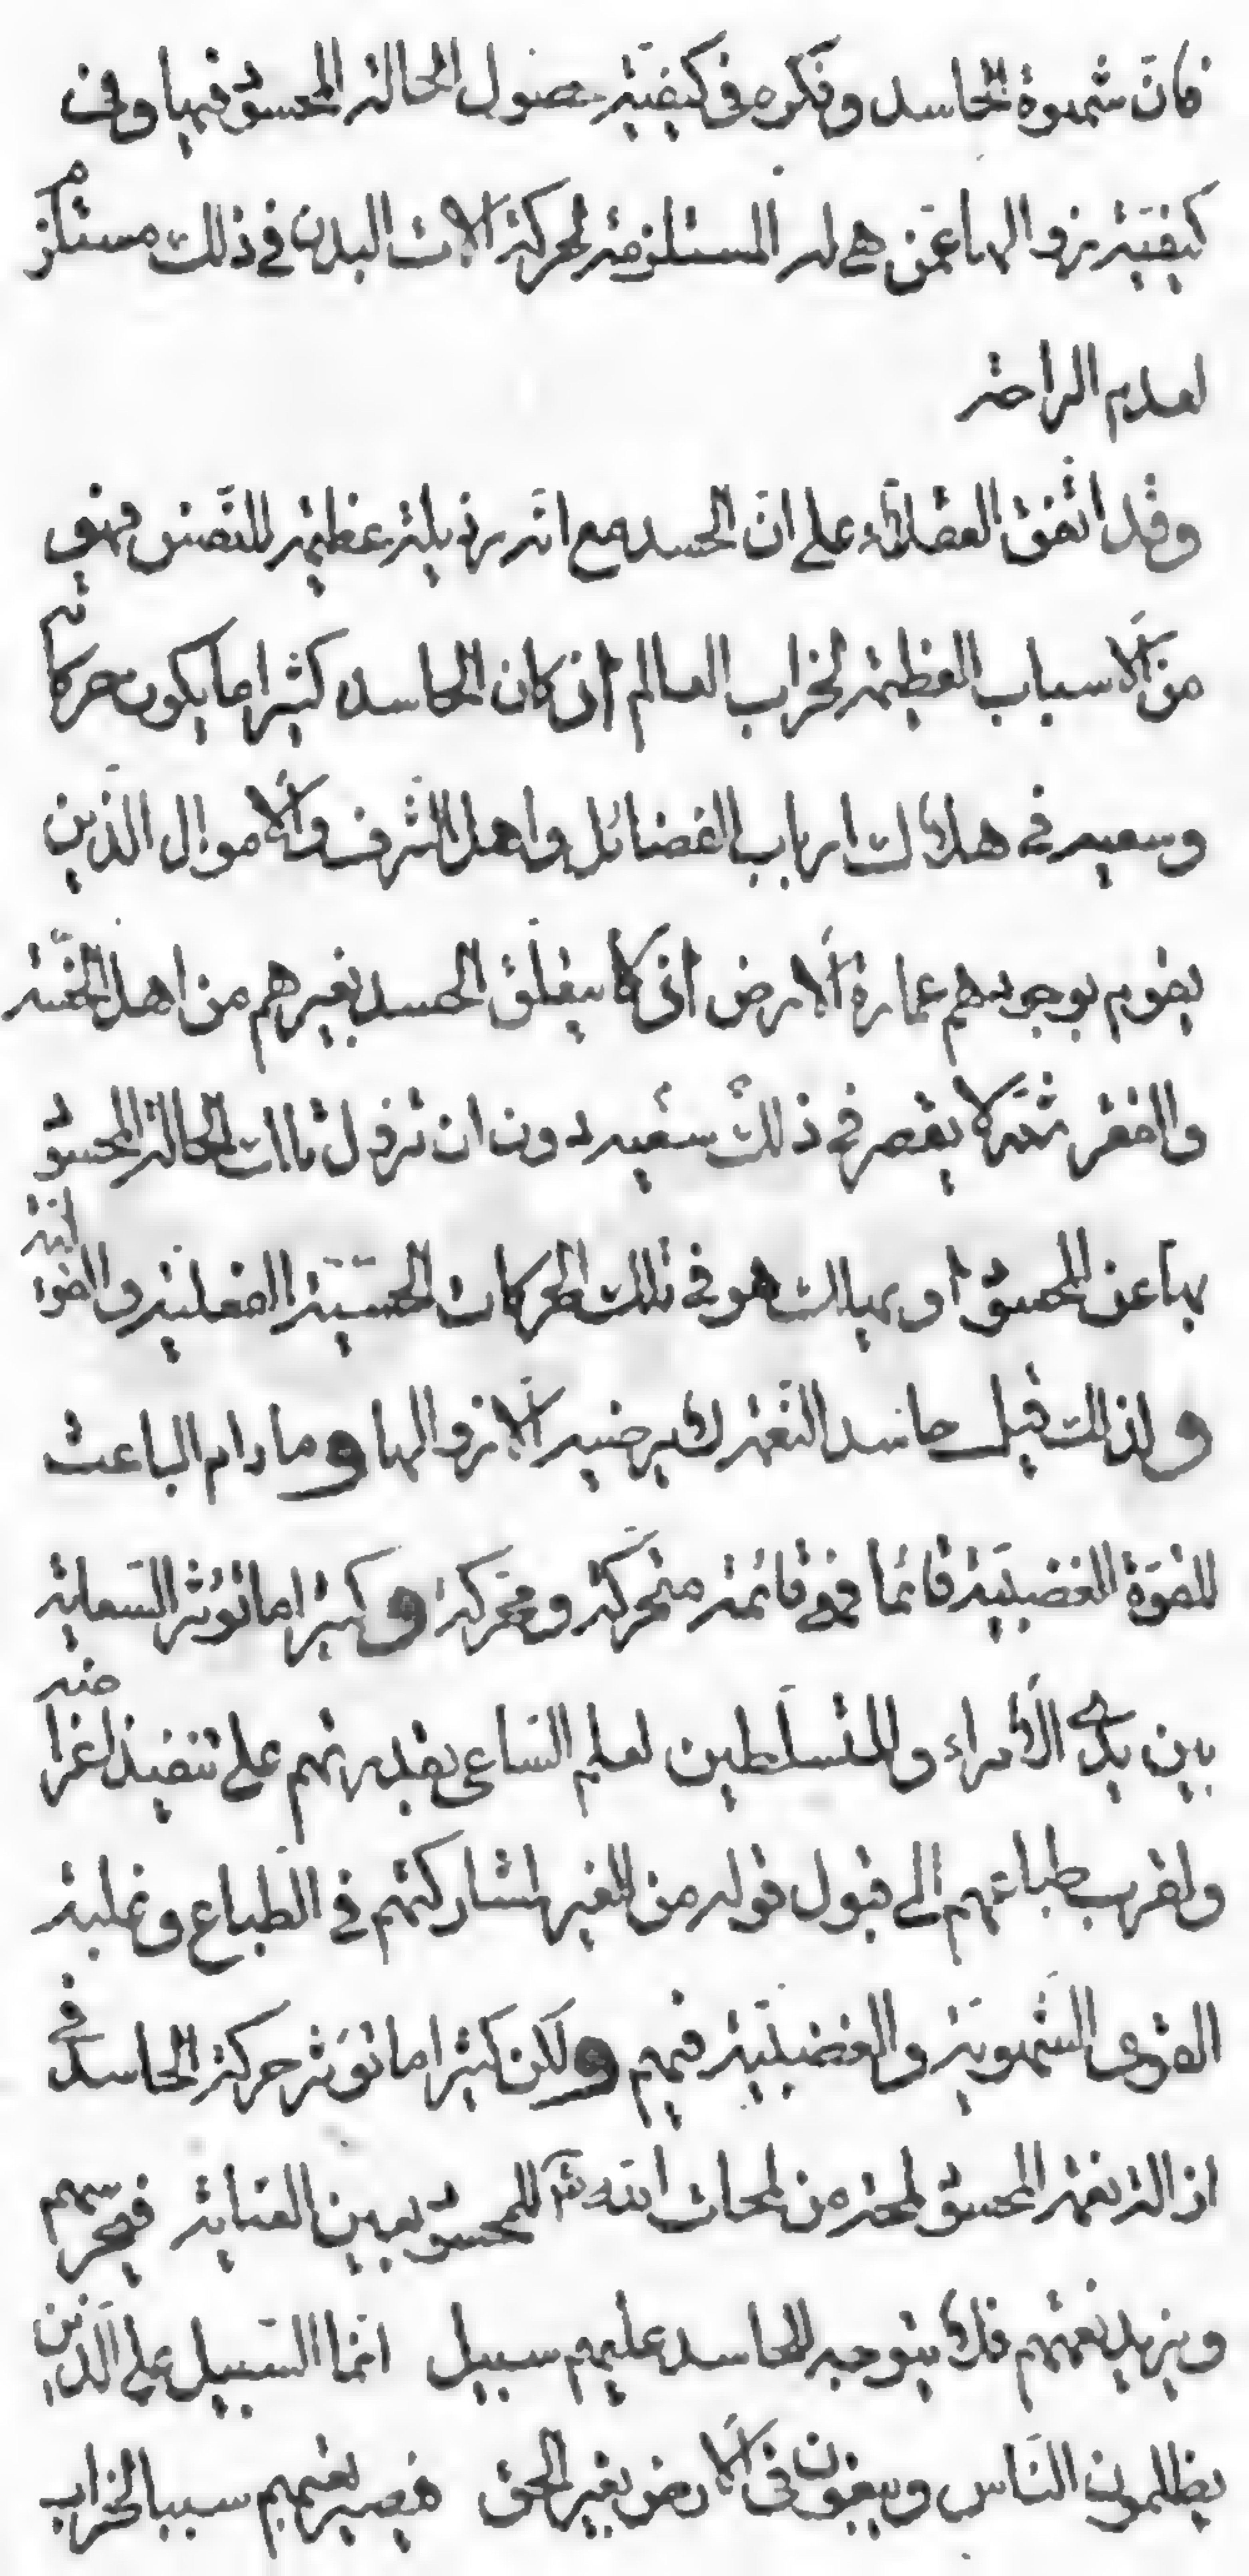 فان شهوة الحاسد وفكره فى كيفية حصول الحالة المحسود فيها وفى
كيفية زوالها عمن هى له المستلزمة لحركة الات البدن فى ذلك مستلزم
لعدم الراحة
وقد اتفق العقلاء على ان الحسد مع انه رذيلة عظيمة للنفس فهو
من الاسباب العظيمة لخراب العالم اذ كان الحاسد كثيرا ما يكون حركاته
وسعيه فى هلاك ارباب الفضائل واهل الشرف والاموال الذين
يقوم بوجودهم عمارة الارض اذ لا يتعلق الحسد بغيرهم من اهل الخسة
والفقر ثم لا يقصر فى ذلك سعيه دون ان تزول تلك الحالة المحسود
بها عن المحسود او يهلك هو فى تلك الحركات الحسية الفعلية والقولية
ولذلك قيل حاسد النعمة لا يرضيه الا زوالها وما دام الباعث
للقوة الغضبية قائما فهى قائمة متحركة ومحركة وكثيرا ما تؤثر السعاية
بين يدى الأمراء والمتسلطين لعلم الساعى بقدرتهم على تنفيذ اغراضه
ولقرب طباعهم الى قبول قوله من الغير لمشاركتهم فى الطباع وغلبة
القوى الشهوية والغضبية فيهم ولكن كثيرا ما تؤثر حركة الحاسد فى
ازالة نعمة المحسود لمحة من لمحات الله تع للمحسود بعين العناية فيحرسهم
ويزيد نعمتهم فلا يتوجه للحاسد عليهم سبيل انما السبيل على الذين
يظلمون الناس ويبغون فى الارض بغير الحق فيصير بغيهم سببا لخراب